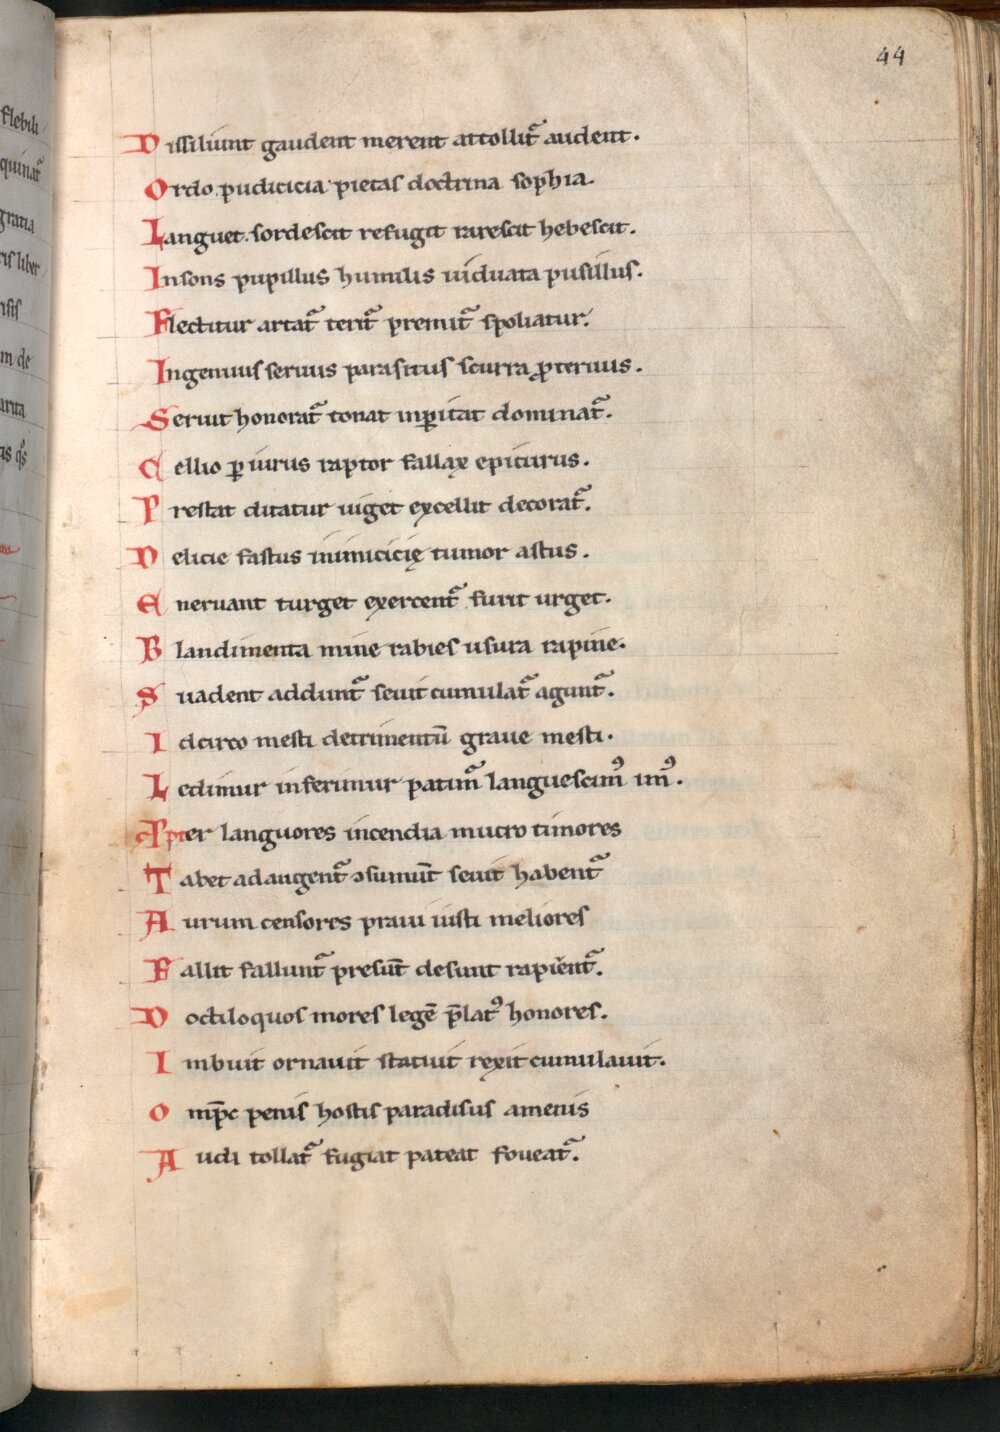 44
flebili
quinat᷑
gratia
ris liber
isis
m de
arita
as qͦs
Dissiliunt gaudent merent attollit᷑ audent.
Ordo pudicicia pietas doctrina sophia.
Languet. sordescit refugit rarescit hebescit.
Insons pupillus humilis uiduata pusillus.
Flectitur artat᷑ terit᷑ premit᷑ spoliatur.
Ingenuus seruus parasitus scurra ꝓteruus.
Seruit honorat᷑ tonat inꝑitat dominat᷑.
Cellio ꝑiurus raptor fallax epicurus.
Prestat ditatur uiget excellit decorat᷑.
Delicie fastus inimicicię tumor astus.
Eneruant turget exercent᷑ furit urget.
Blandimenta mine rabies usura rapine.
Suadent addunt᷑ seuit cumulat᷑ agunt᷑.
Idcirco mesti detrimentū graue mesti.
Ledimur inferimur patim᷑ languescimꝰ imꝰ.
er languores incendia mucro timores
Tabet adaugent᷑ ↄsumūt seuit habent᷑
Aurum censores praui iusti meliores
Fallit fallunt᷑ presūt desunt rapient᷑.
Dociloquos mores legē p̄latꝰ honores.
Imbuit ornauit statuit rexit cumulauit.
Omp̄c penis hostis paradisus amenis
Audi tollat᷑ fugiat pateat foueat᷑.